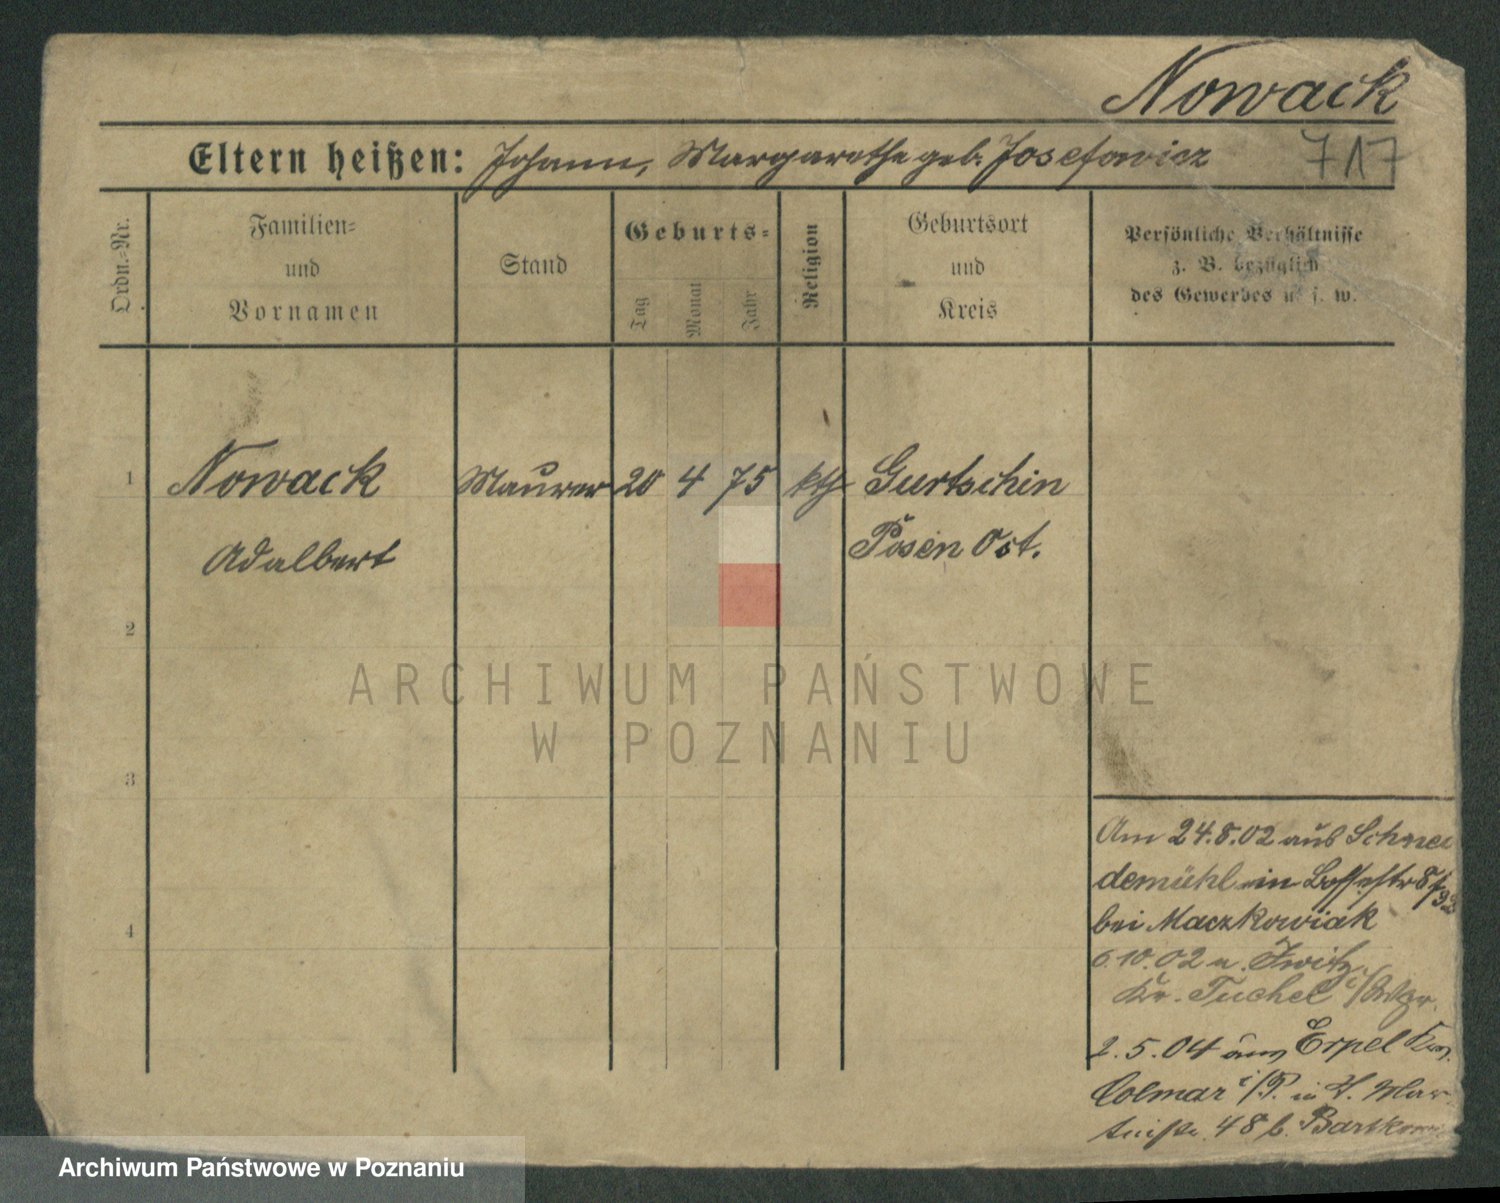 Nowack
Eltern heißen: Johann, Margarethe geb. Josefowicz
717
Ordn.-Nr.
Familien-
und
Vornamen
Stand
Geburts-
Tag
Monat
Jahr
Religion
Geburtsort
und
Kreis
Persönliche Verhältnisse
z. B. bezüglich
des Gewerbes u. s. w.
1
Nowack Maurer 20 4 75 kth Gurtschin
Adalbert Posen Ost.
2
3
4
Am 24.8.02 aus Schnei
demühl in
bei Maczkowiak
6.10.02 n.
Kr. Tuchel i/Wpr.
2.5.04 aus Erpel Krs.
Colmar i/P. in H. Mar
48 b.
ARCHIWUM PAŃSTWOWE
W POZNANIU
Archiwum Państwowe w Poznaniu